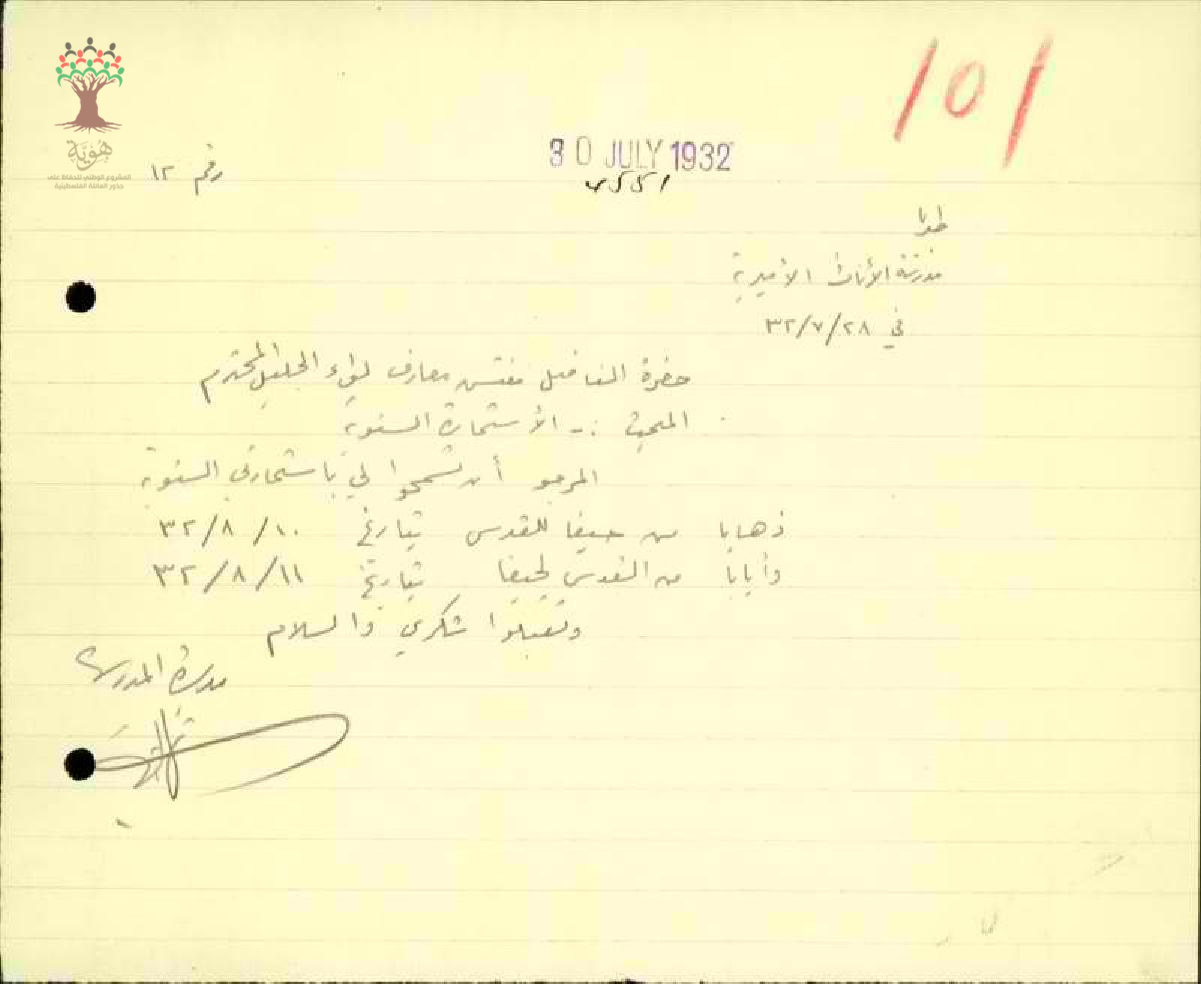 101
هوية
المشروع الوطني للحفاظ على
جذور العائلة الفلسطينية
رقم ١٢
30 JULY 1932
4551
مدرسة الأناث الأميرية
في ٣٢/٧/٢٨
حضرة الفاضل مفتش معارف لواء الجليل المحترم
المبحث :- الأستمارة السنوية
المرجو أن تسمحوا لي بأستمارتي السنوية
ذهابا من حيفا للقدس بتاريخ ٣٢/٨/١٠
وأيابا من القدس لحيفا بتاريخ ٣٢/٨/١١
وتقبلوا شكري والسلام
مديرة المدرسة